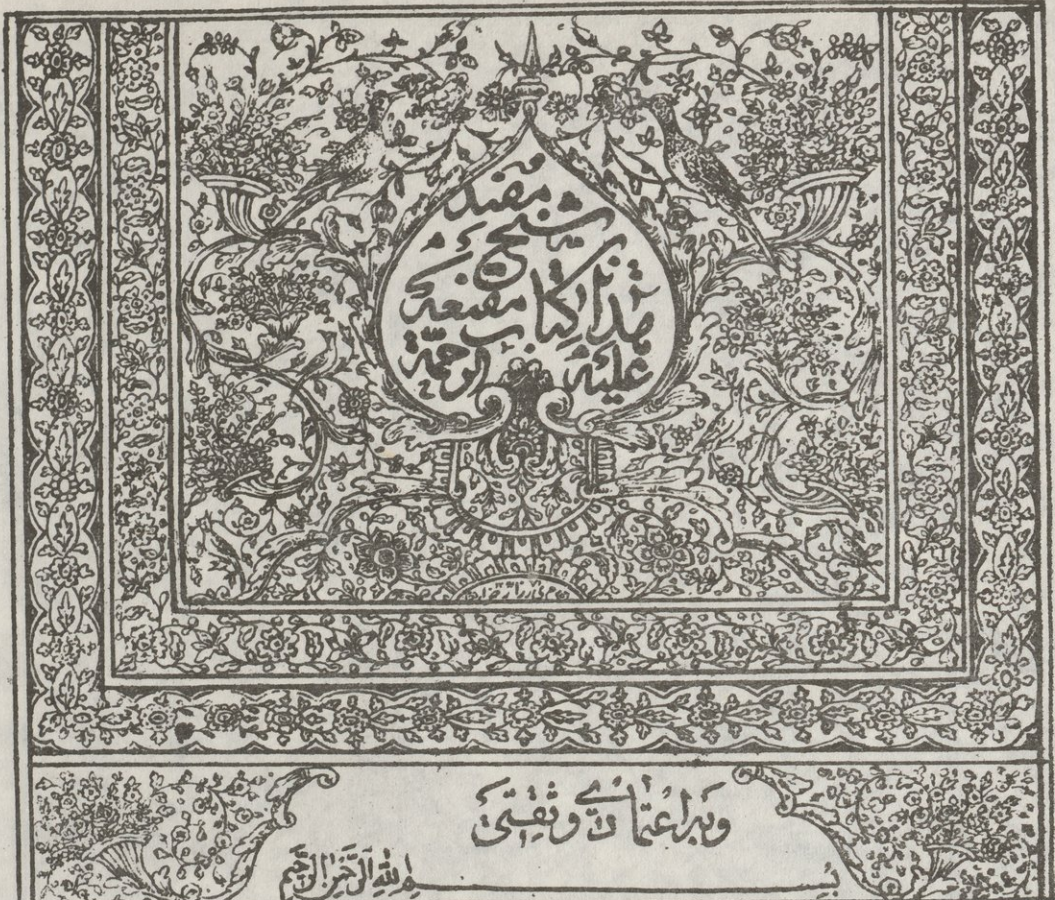 هذا كتاب مقنعة
شيخ مفيد
عليه الرحمة
وبه اعتمادي وثقتي
بسم الله الرحمن الرحيم